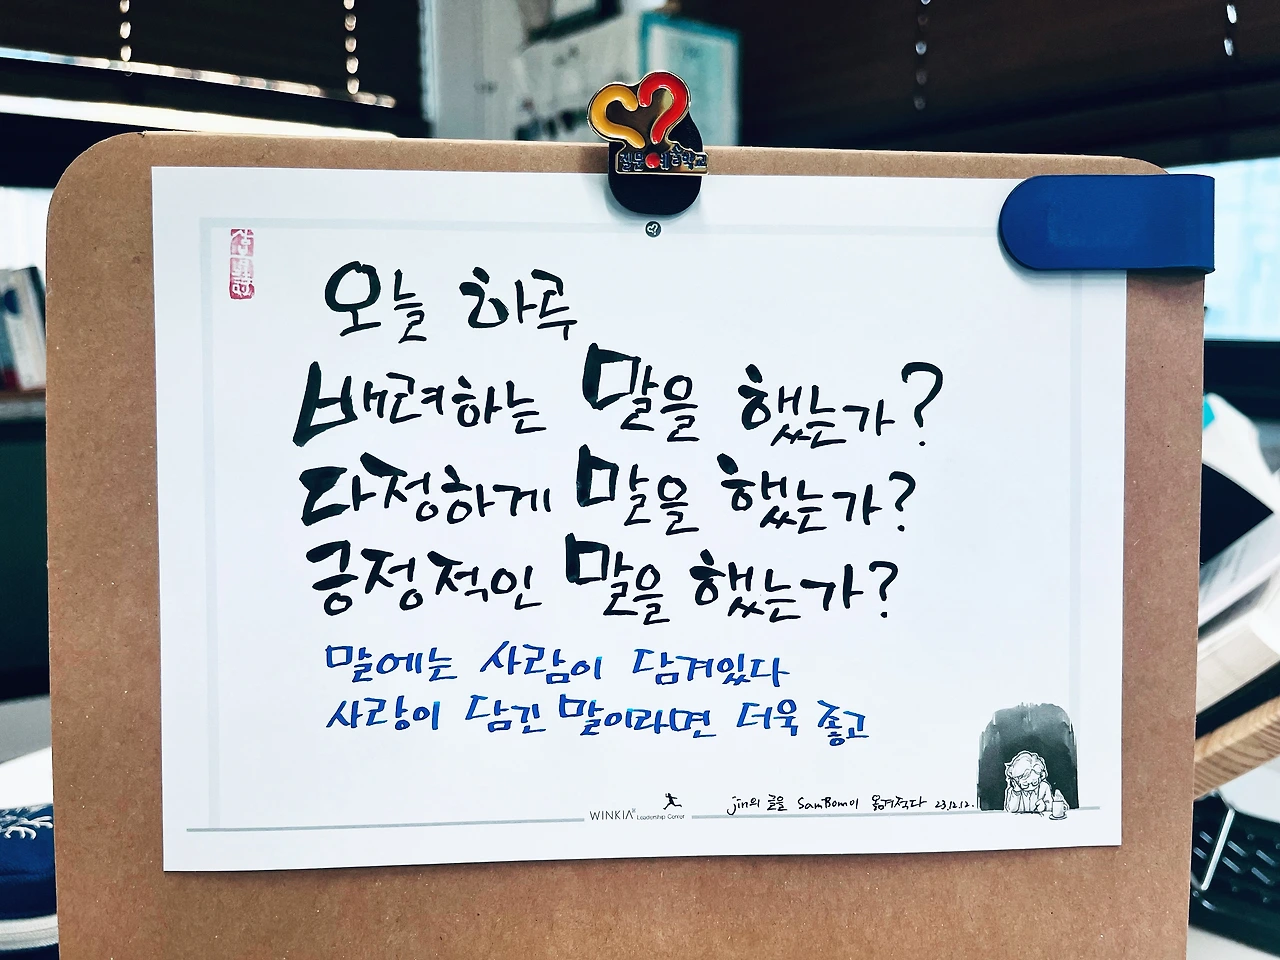 질문예술학교
오늘 하루
배려하는 말을 했는가?
다정하게 말을 했는가?
긍정적인 말을 했는가?
말에는 사람이 담겨있다
사랑이 담긴 말이라면 더욱 좋고
jin의 글을 SamBom이 옮겨적다 23.12.12.
WINKIA® Leadership Center